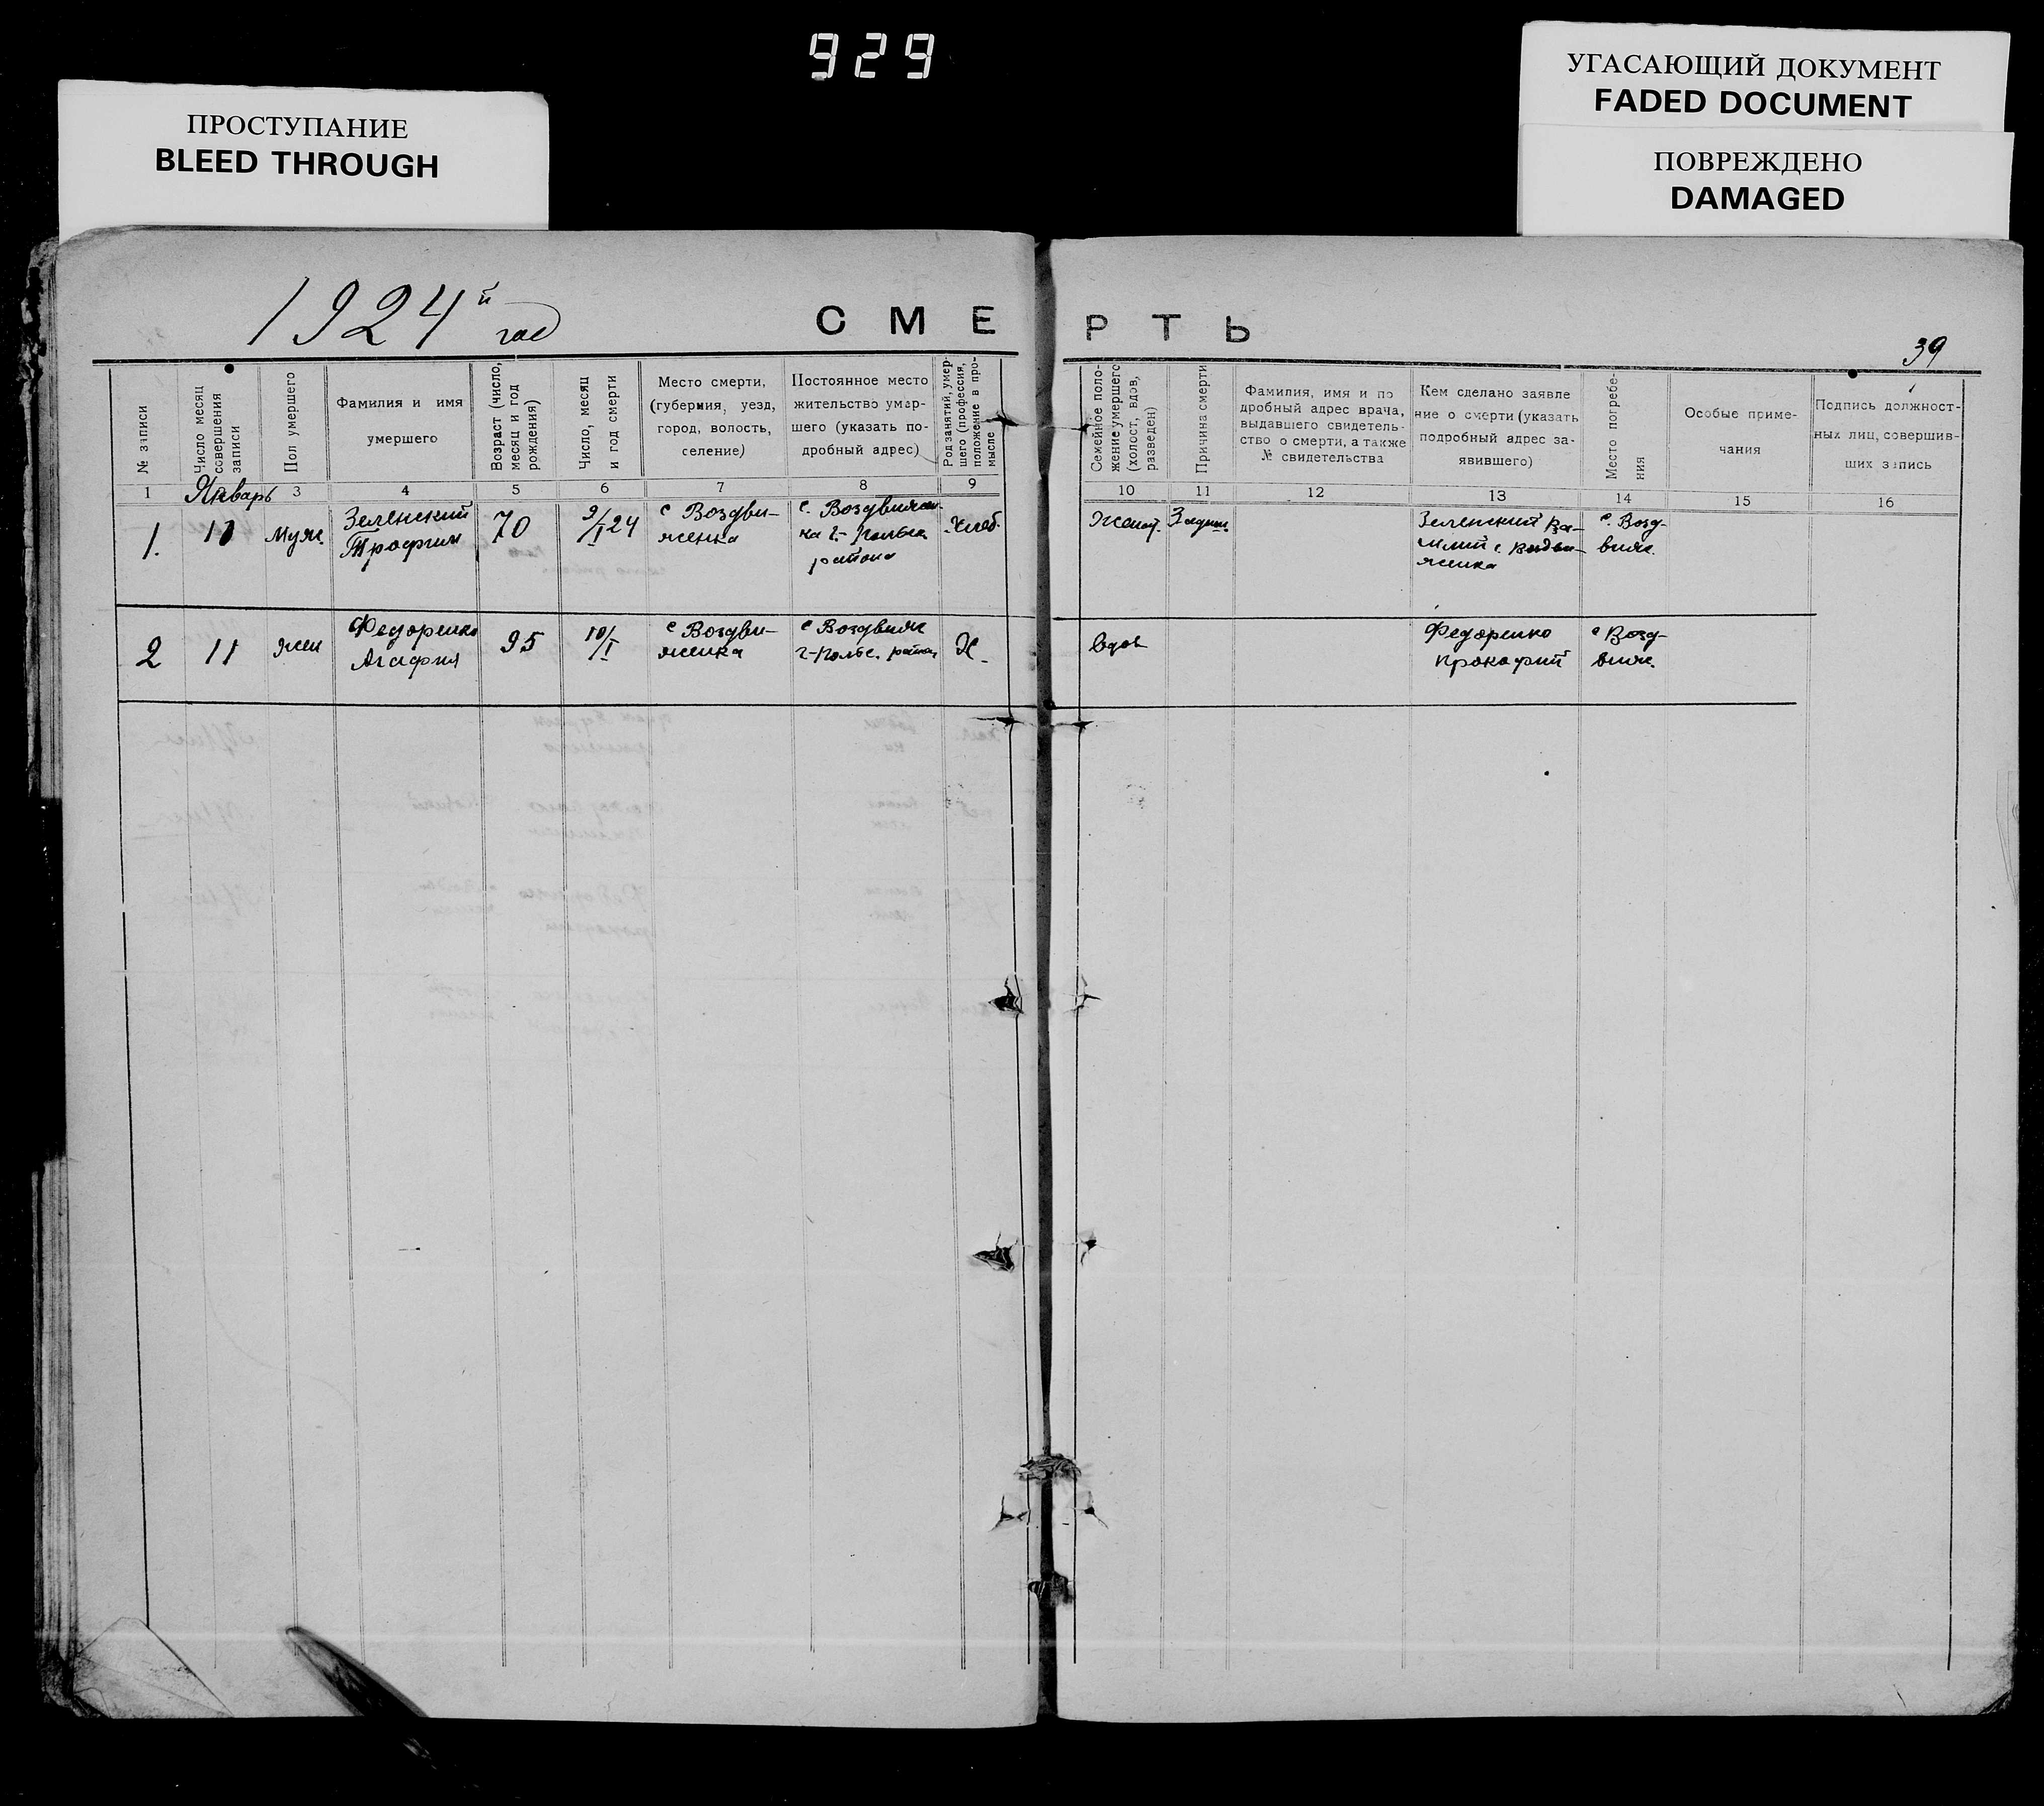 929
ПРОСТУПАНИЕ
BLEED THROUGH
УГАСАЮЩИЙ ДОКУМЕНТ
FADED DOCUMENT
ПОВРЕЖДЕНО
DAMAGED
1924й год
СМЕРТЬ
39
№ записи
Число месяц
совершения
записи
Пол умершего
Фамилия и имя
умершего
Возраст (число,
месяц и год
рождения)
Число, месяц
и год смерти
Место смерти,
(губерния, уезд,
город, волость,
селение)
Постоянное место
жительство умер-
шего (указать по-
дробный адрес)
Род занятий, умер-
шего (профессия,
положение в про-
мысле
Семейное поло-
жение умершего
(холост, вдов,
разведен)
Причина смерти
Фамилия, имя и по
дробный адрес врача,
выдавшего свидетель-
ство о смерти, а также
№ свидетельства
Кем сделано заявле
ние о смерти (указать
подробный адрес за-
явившего)
Место погребе-
ния
Особые приме-
чания
Подпись должност-
ных лиц, совершив-
ших запись
1
Январь
3
4
5
6
7
8
9
10
11
12
13
14
15
16
1.
11
муж.
Зеленский
Трофим
70
9/I 24
с Воздви-
женка
с. Воздвижен
ка г.-
района
хлеб.
Женат.
Зеленский
с. Воздви-
женка
с. Возд-
виж.
2
11
жен
Федоренко
Агафия
95
10/I
с Воздви-
женка
с Воздвиж
района
Х.
вдов
Федоренко
Прокофий
с Возд-
виж.